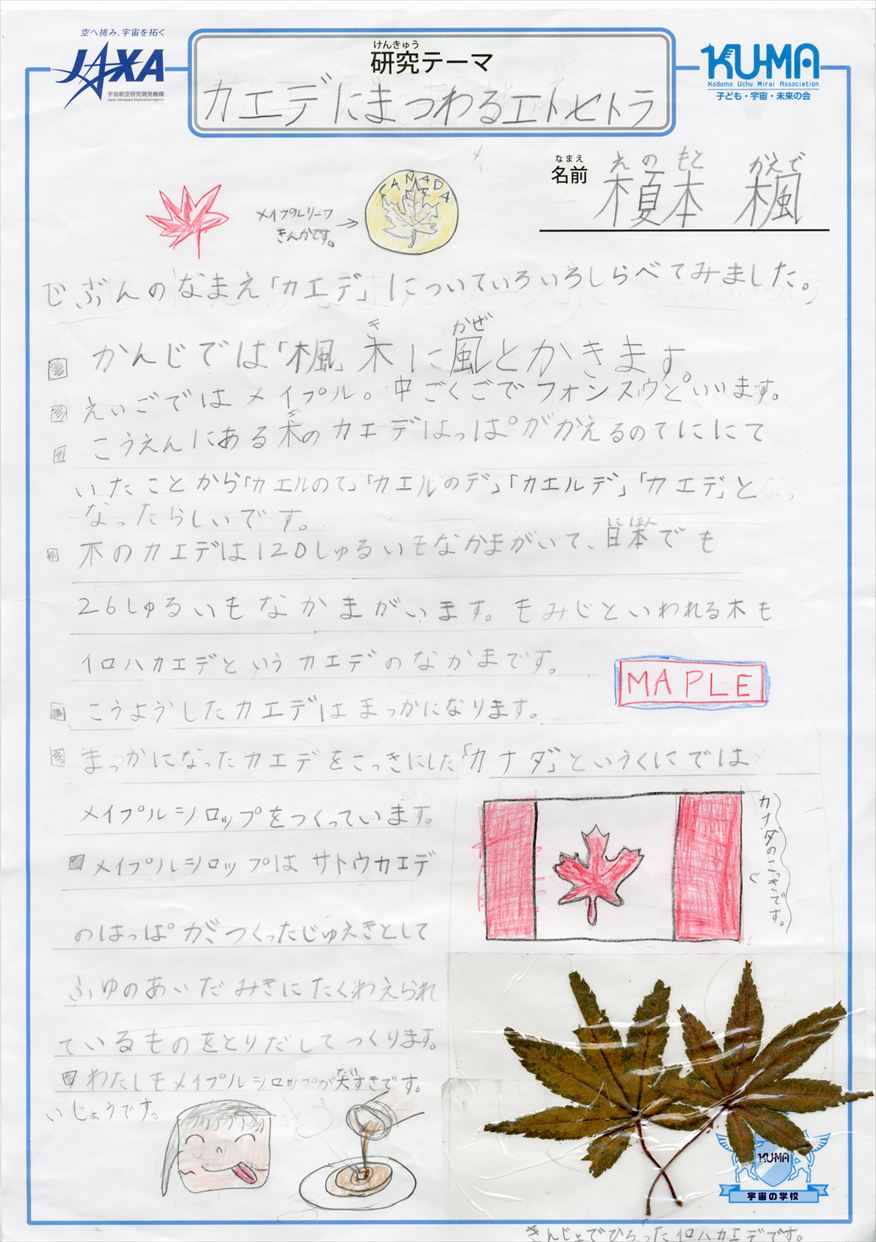 空へ挑み、宇宙を拓く
JAXA
宇宙航空研究開発機構
Japan Aerospace Exploration Agency
けんきゅう
研究テーマ
カエデにまつわるエトセトラ
KU-MA
Kodomo Uchu Mirai Association
子ども・宇宙・未来の会
なまえ
名前
えのもと かえで
榎本 楓
CANADA
メイプルリーフ
きんかです。
じぶんのなまえ「カエデ」についていろいろしらべてみました。
き かぜ
かんじでは「楓」木に風とかきます。
えいごではメイプル。中ごくごでフォンスウといいます。
き
こうえんにある木のカエデはっぱがかえるのてににて
いたことから「カエルのて」「カエルのデ」「カエルデ」「カエデ」と
なったらしいです。
にほん
木のカエデは120しゅるいもなかまがいて、日本でも
26しゅるいもなかまがいます。もみじといわれる木も
イロハカエデというカエデのなかまです。
MAPLE
こうようしたカエデはまっかになります。
まっかになったカエデをこっきにした「カナダ」というくにでは
メイプルシロップをつくっています。
カナダのこっきです。
メイプルシロップはサトウカエデ
のはっぱがつくったじゅえきとして
ふゆのあいだみきにたくわえられ
ているものをとりだしてつくります。
だい
わたしもメイプルシロップが大すきです。
いじょうです。
KUMA
宇宙の学校
きんじょでひろったイロハカエデです。